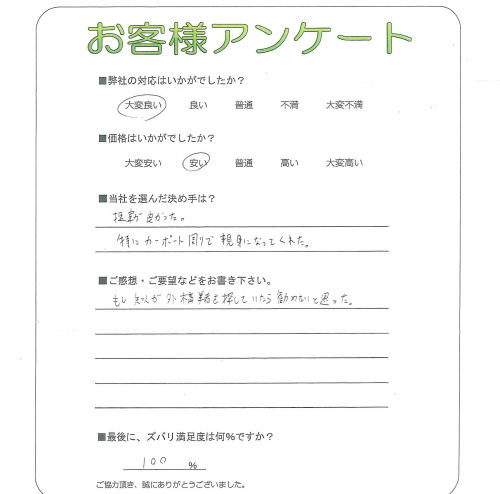 お客様アンケート
■弊社の対応はいかがでしたか？
大変良い 良い 普通 不満 大変不満
■価格はいかがでしたか？
大変安い 安い 普通 高い 大変高い
■当社を選んだ決め手は？
提案が良かった。
特にカーポート周りで親身になってくれた。
■ご感想・ご要望などをお書き下さい。
もし知人が外構業者を探していたら勧めたいと思った。
■最後に、ズバリ満足度は何%ですか？
100 %
ご協力頂き、誠にありがとうございました。